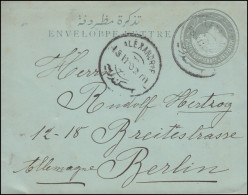 تذكرة مظروفة
ENVELOPPE LETTRE
ALEXANDRIE
Herrn
Rudolf Hertzog
12-18 Breitestrasse
Allemagne Berlin